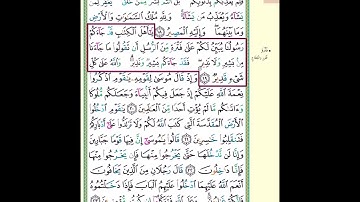 فلم يعذبكم بذنوبكم بل أنتم بشر ممن خلق يغفر لمن
يشاء ويعذب من يشاء ولله ملك السموات والأرض
وما بينهما وإليه المصير ١٨ يأهل الكتب قد جاءكم
رسولنا يبين لكم على فترة من الرسل أن تقولوا ما جاءنا
من بشير ولا نذير فقد جاءكم بشير ونذير والله على كل
شيء قدير ١٩ وإذ قال موسى لقومه يقوم اذكروا
نعمة الله عليكم إذ جعل فيكم أنبياء وجعلكم ملوكا
وءاتىكم ما لم يؤت أحدا من العلمين ٢٠ يقوم ادخلوا
الأرض المقدسة التي كتب الله لكم ولا ترتدوا على أدباركم
فتنقلبوا خسرين ٢١ قالوا يموسى إن فيها قوما جبارين
وإنا لن ندخلها حتى يخرجوا منها فإن يخرجوا منها
فإنا دخلون ٢٢ قال رجلان من الذين يخافون
أنعم الله عليهما ادخلوا عليهم الباب فإذا دخلتموه